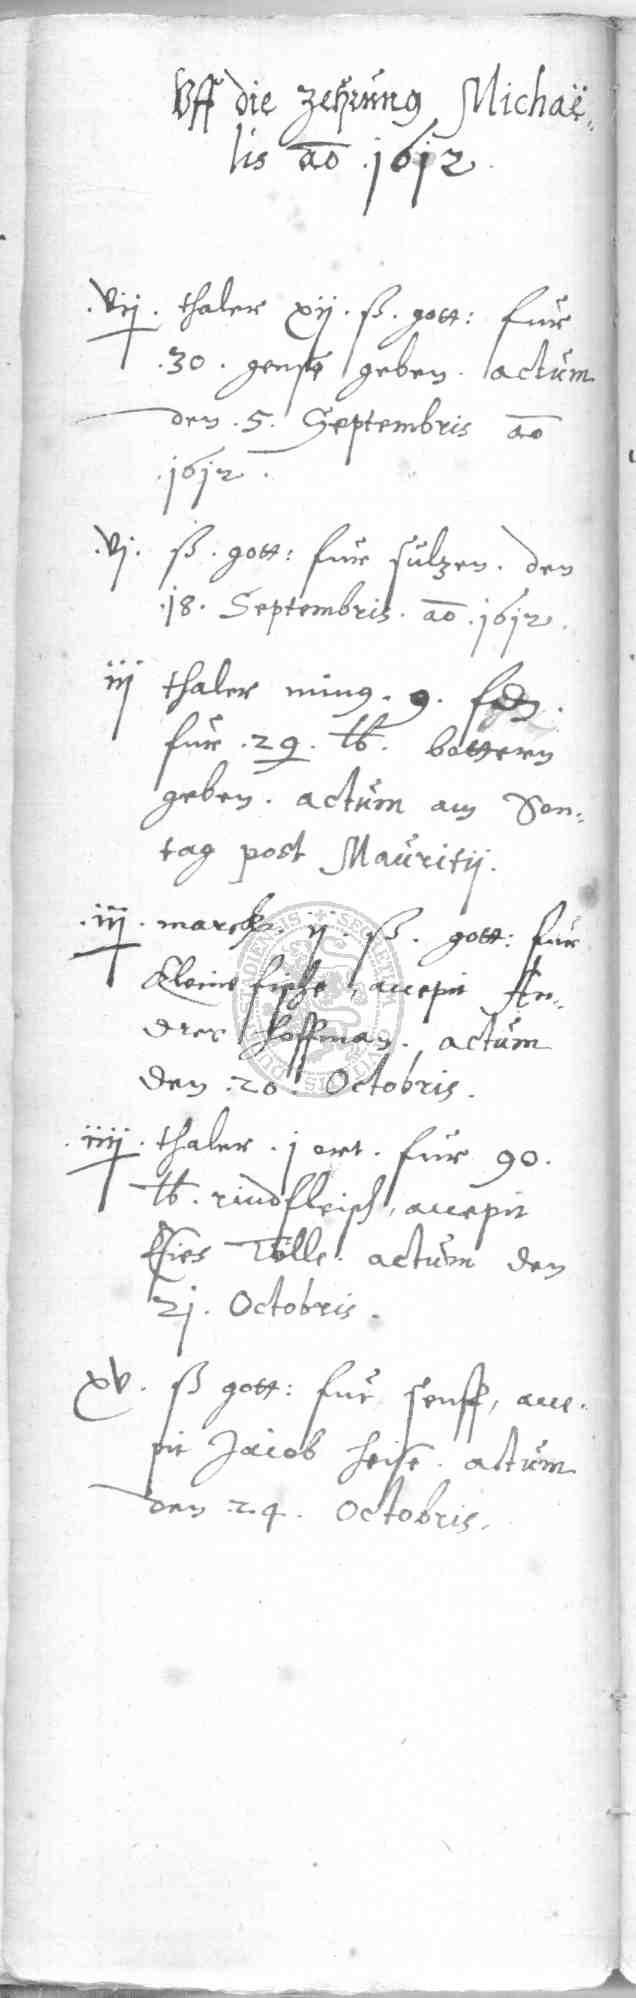 Uff die zehrung Michaë-
lis ao .1612.
.vij. thaler xij. ß. gott: fur
.30. gense geben. actum
den .5. Septembris ao
.1612.
.vj. ß. gott: fur sultzen. den
.18. Septembris. ao .1612.
iij thaler minus .9.
fur .29. lb. bottern
geben. actum am Son-
tag post Mauritij.
.iij. marck. ij. ß. gott: fur
kleine fische, accepit An-
dres Hoffman. actum
den .20. Octobris.
.iiij. thaler .j ort. fur 90.
lb. rindfleisch, accepit
Tolle. actum den
21. Octobris.
xv. ß gott: fur senff, acce-
pit Jacob heise. actum
den .24. Octobris.